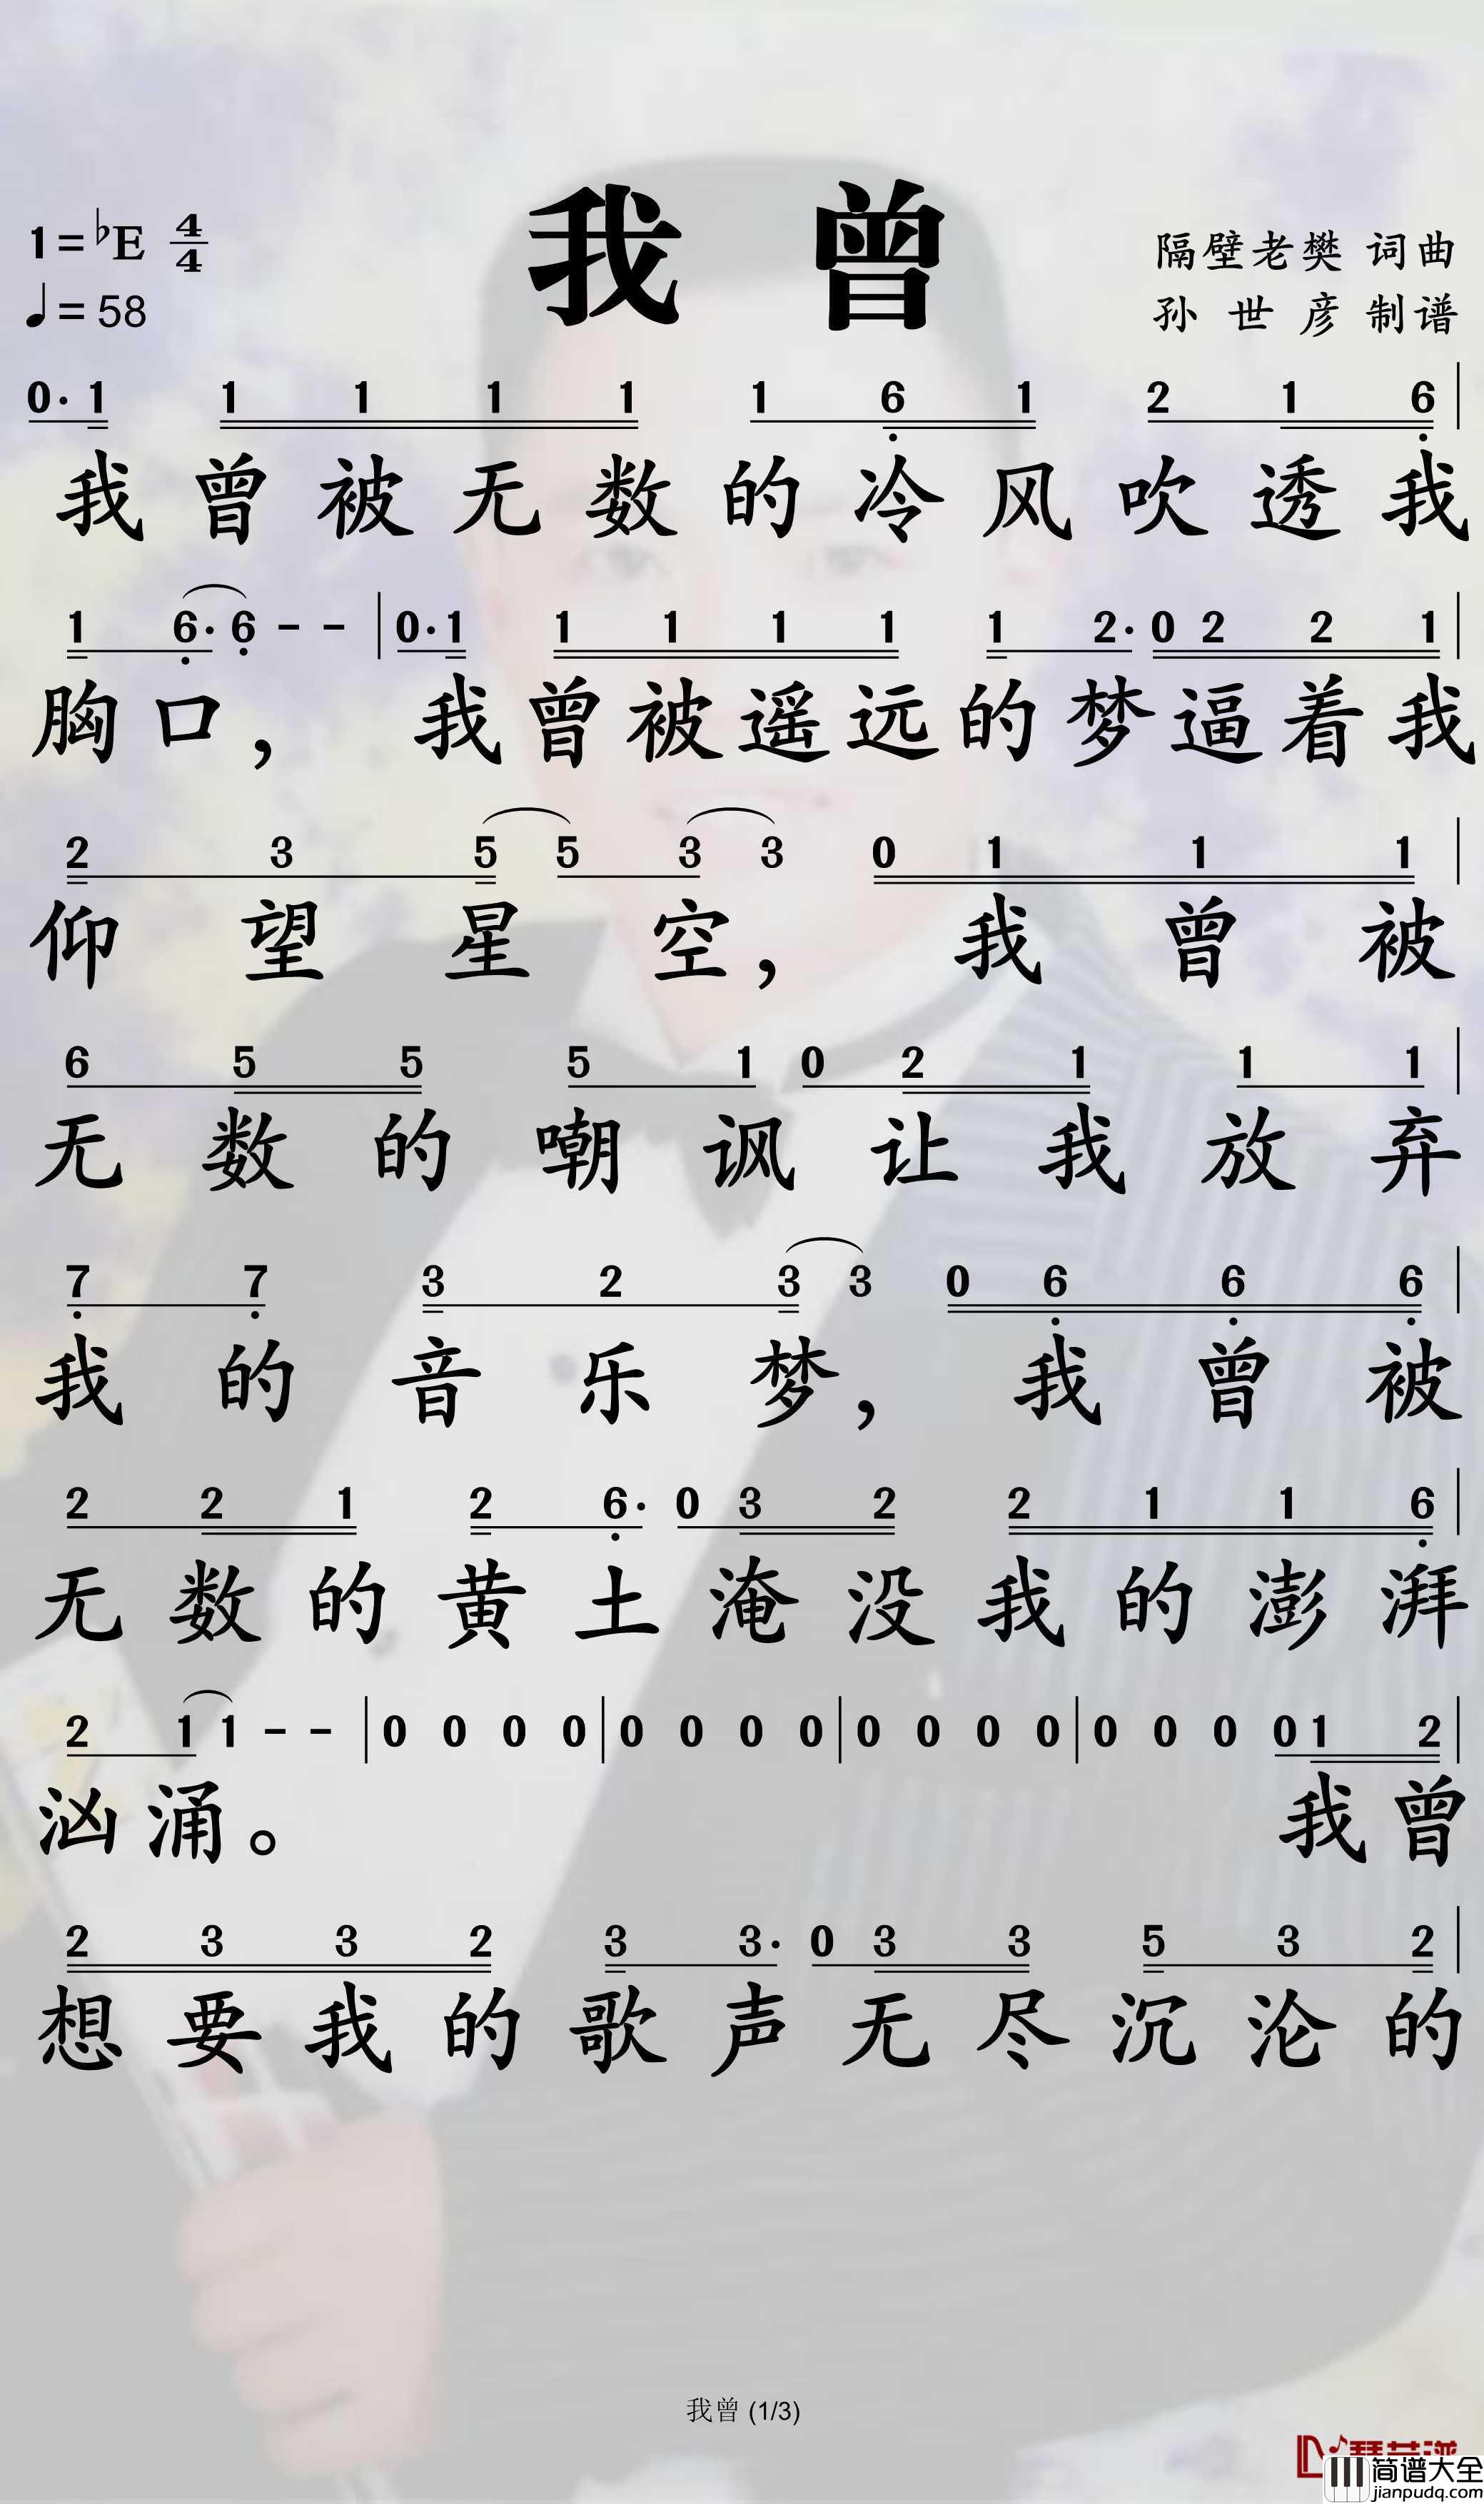 我 曾
1=♭E 4/4
♩=58
隔壁老樊 词曲
孙 世 彦 制谱
0· 1 1 1 1 1 1 6 1 2 1 6 |
我曾被无数的冷风吹透我
1 6· 6 - - | 0· 1 1 1 1 1 1 2· 0 2 2 1 |
胸口， 我曾被遥远的梦逼着我
2 3 5 5 3 3 0 1 1 1 |
仰望星空， 我曾被
6 5 5 5 1 0 2 1 1 1 |
无数的嘲讽让我放弃
7 7 3 2 3 3 0 6 6 6 |
我的音乐梦， 我曾被
2 2 1 2 6· 0 3 2 2 1 1 6 |
无数的黄土淹没我的澎湃
2 1 1 - - | 0 0 0 0 | 0 0 0 0 | 0 0 0 0 | 0 0 0 0 1 2 |
汹涌。 我曾
2 3 3 2 3 3· 0 3 3 5 3 2 |
想要我的歌声无尽沉沦的
我曾 (1/3)
简谱大全
jianpudq.com